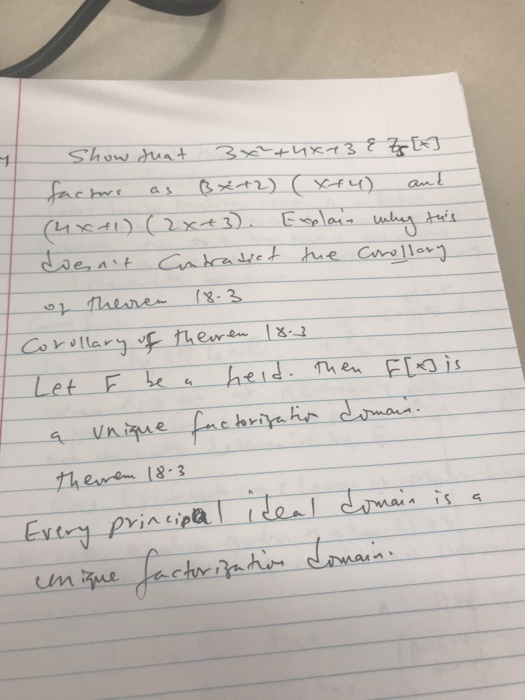 Show that 3x²+4x+3 ∈ Z₅[x]
factors as (3x+2) (x+4) and
(4x+1) (2x+3). Explain why this
doesn't Contradict the Corollary
of Theorem 18.3
Corollary of Theorem 18.3
Let F be a field. Then F[x] is
a unique factorization domain.
Theorem 18.3
Every principal ideal domain is a
unique factorization domain.